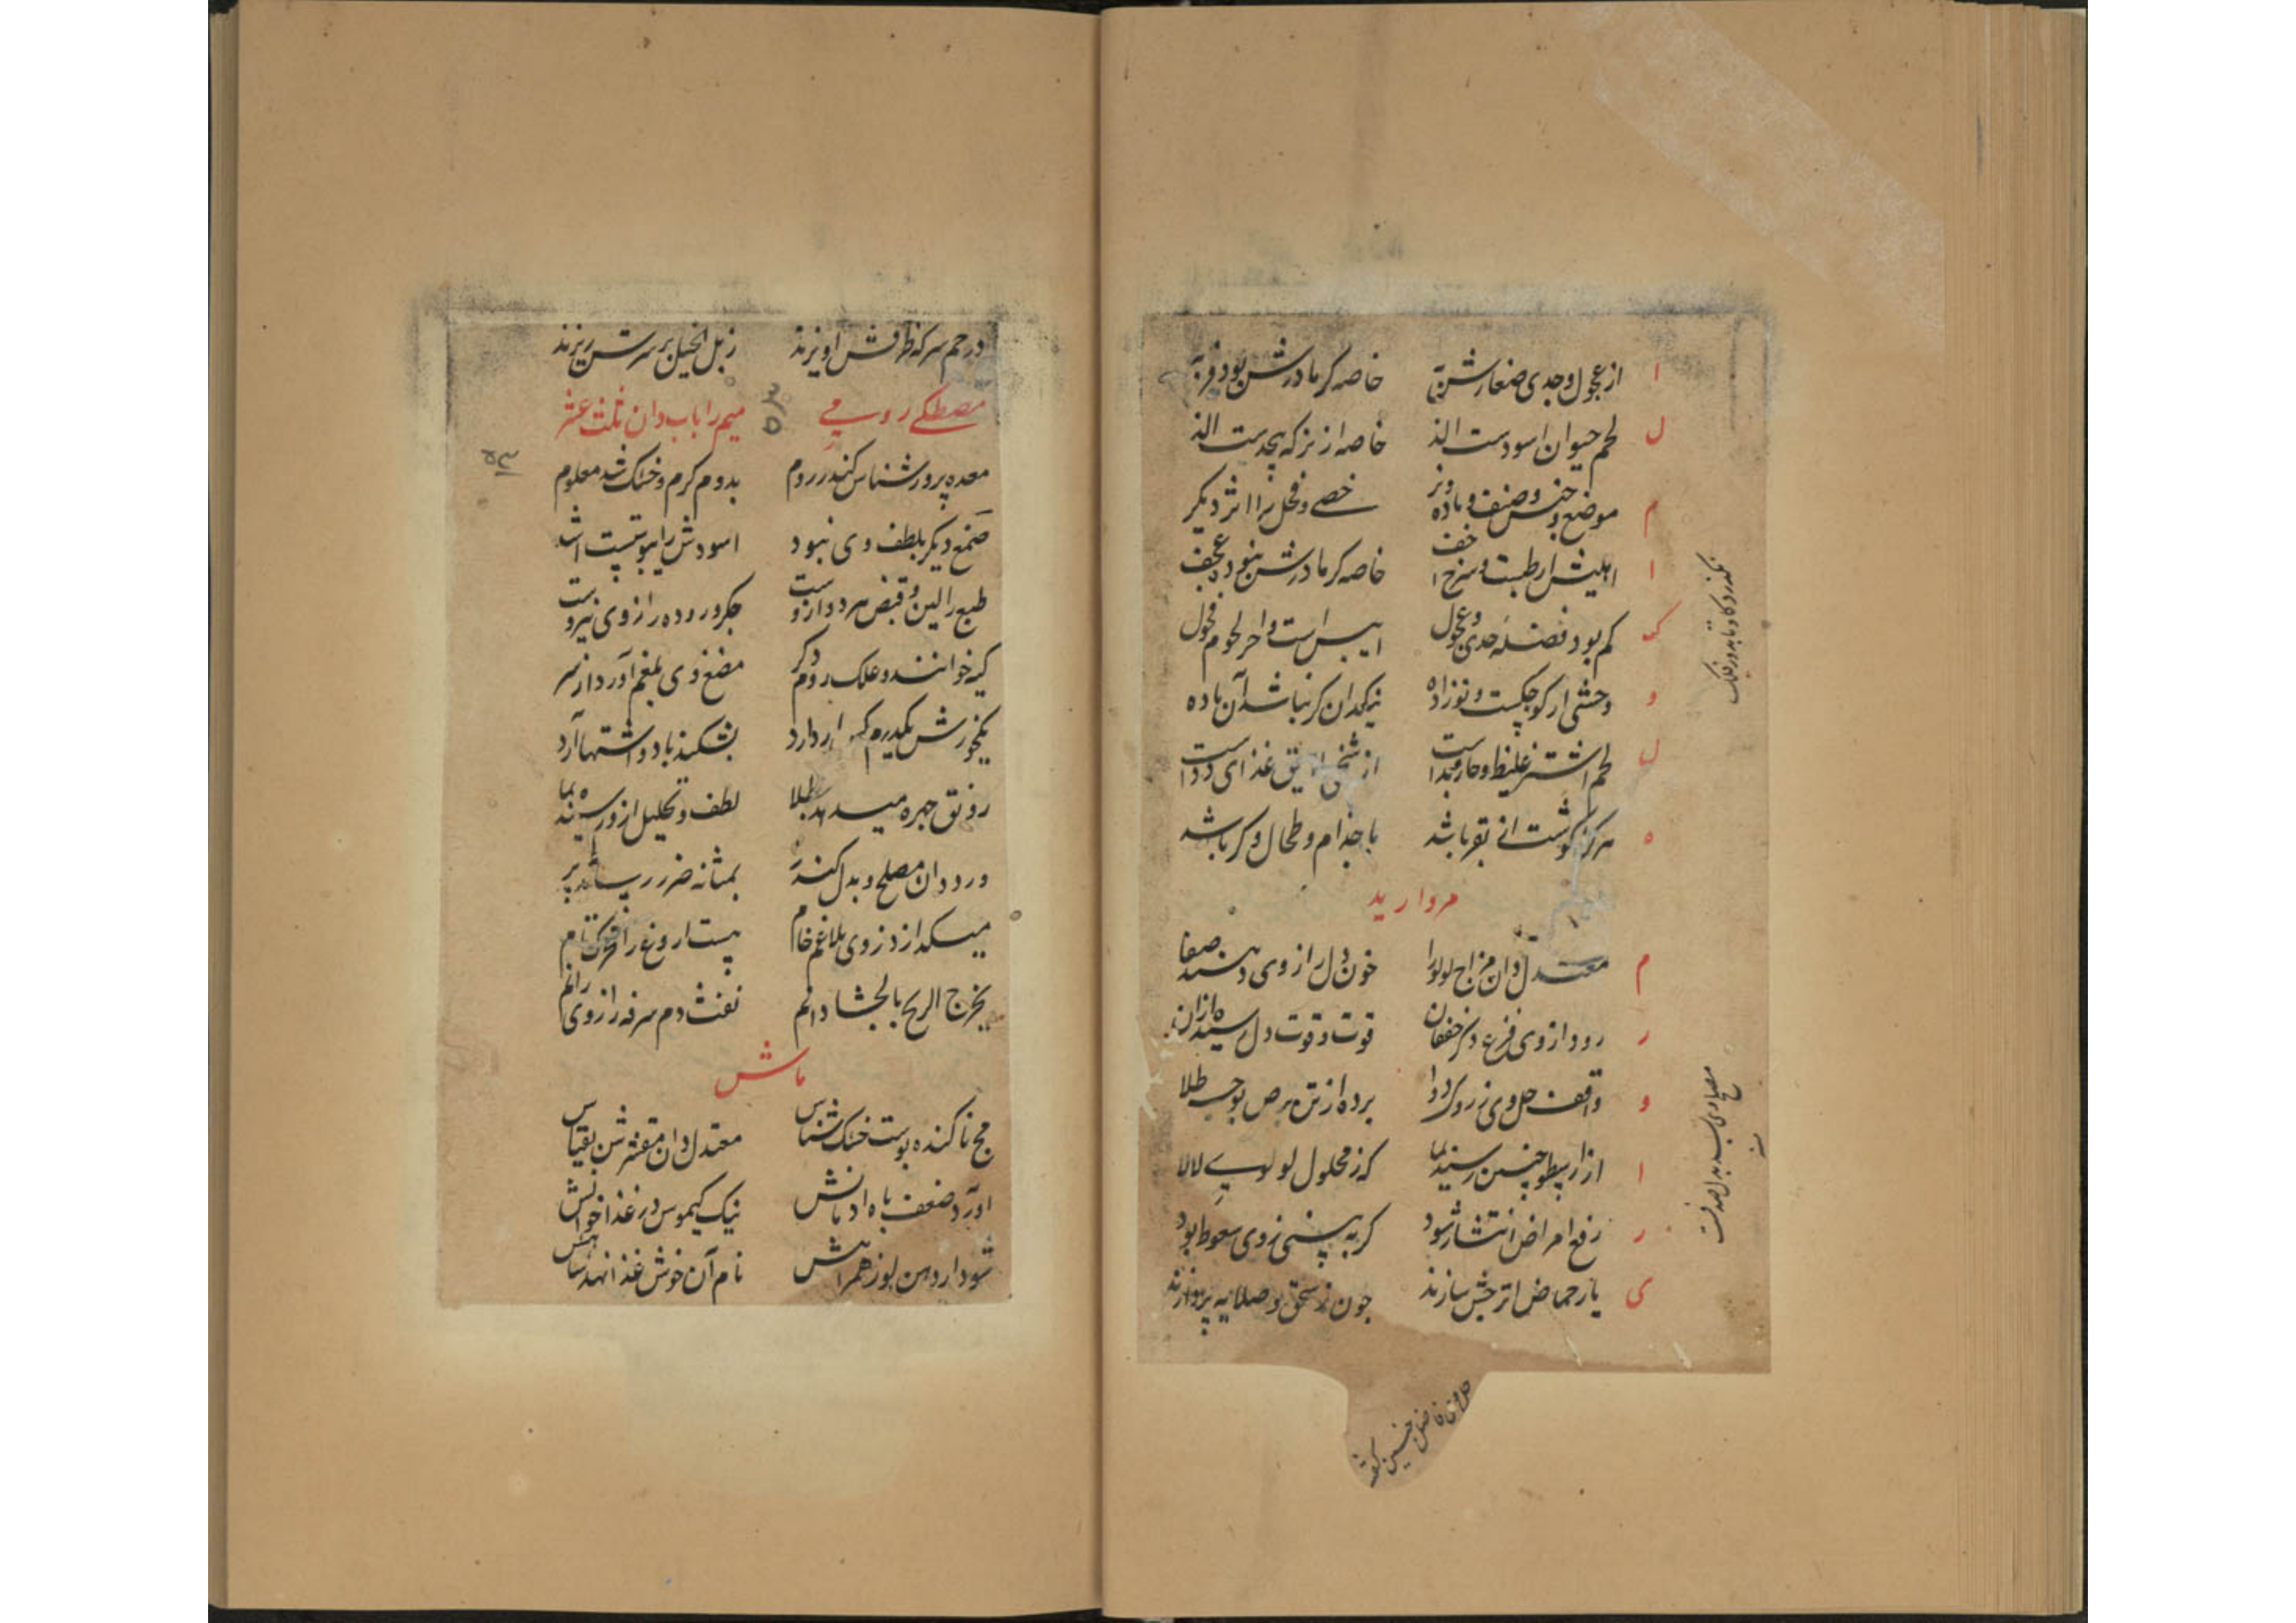 ا از عجول و جدی صغارش به خاصه کر مادرش بود فربه
ل لحم حیوان اسودست الذ خاصه از نر که بچه‌ست الذ
م موضع و جنس و صنف و ماده و نر خصی و فحل را اثر دیگر
ا اهلیش ارطبست و سرخ اخف خاصه کر مادرش نبود عجف
ک کم بود فضلهٔ جدی و عجول ایبس است و احر لحوم فحول
و وحشی ار کوچکست و نوزاده نیکدان کر نباشد آن ماده
ل لحم اشتر غلیظ و حار و بداست از غذای و دواست
ه هر کرا کوشت انی بقر باشد با جذام و طحال و کر باشد
مروارید
م معتدل دان مزاج لولو را خون دل را ز وی دهند صفا
ر رود از وی فزع دکر خفقان قوت و قوت دل رسید ازان
و واقف حل وی ز روی دوا برده از تن برص بوجه طلا
ا از ارسطو چنین رسید نما که ز محلول لولوی لالا
ر رفع امراض انتشار شود کر به بینی ز وی سعوط بود
ی یا ز حماض اترجش سازند چون ز سحق و صلایه پردازند
مصلح وی بسد بدل صدفست
در خم سرکه ظرفش اویزند زبل الخیل بر سرش ریزند
مصطکی رومی میم را باب دان ثلث عشر
معده پرور شناس کندر روم بدوم کرم و خشک شد معلوم
صمغ دیکر بلطف وی نبود اسودش را یبوست اشد
طبع را لین و قبض هر دو ازوست جکر و روده را ز وی نیروست
کیه خوانند و علک روم دکر مضغ وی بلغم آورد از سر
یکدرم دارد بشکند باد و اشتها آرد
رونق چهره میدهد بطلا لطف و تحلیل ازو رسیده نما
ورد دان مصلح و بدل کندر بمثانه ضرر رساند پر
میکدازد ز وی بلاغم خام
یخرج الریح بالجشا دانم نفث دم سرفه را ز وی رانم
ماش
مج ناکنده پوست خشک شناس معتدل دان مقشرش بقیاس
اورد ضعف باه ادمانش نیک کیموس در غذا خوانش
شود ار دهن لوز همراهش نام آن خوش غذا نهد